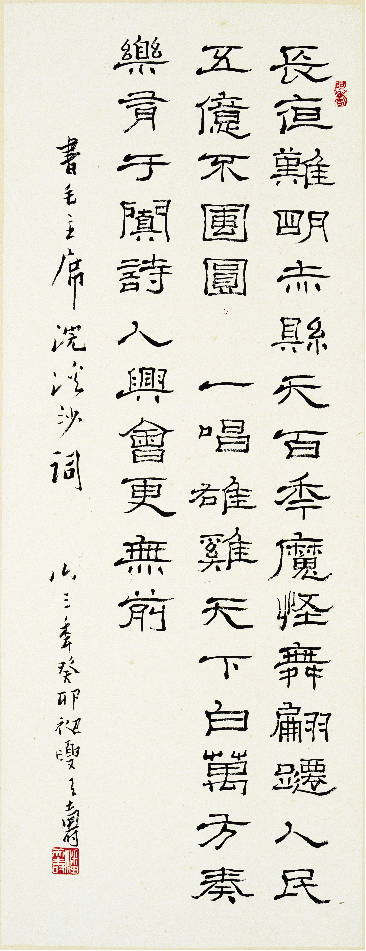 長夜難明赤縣天百秊魔怪舞翩躚人民
五億不團圓　一唱雄雞天下白萬方奏
樂有于闐詩人興會更無前
書毛主席浣溪沙詞　六三年癸卯王壽